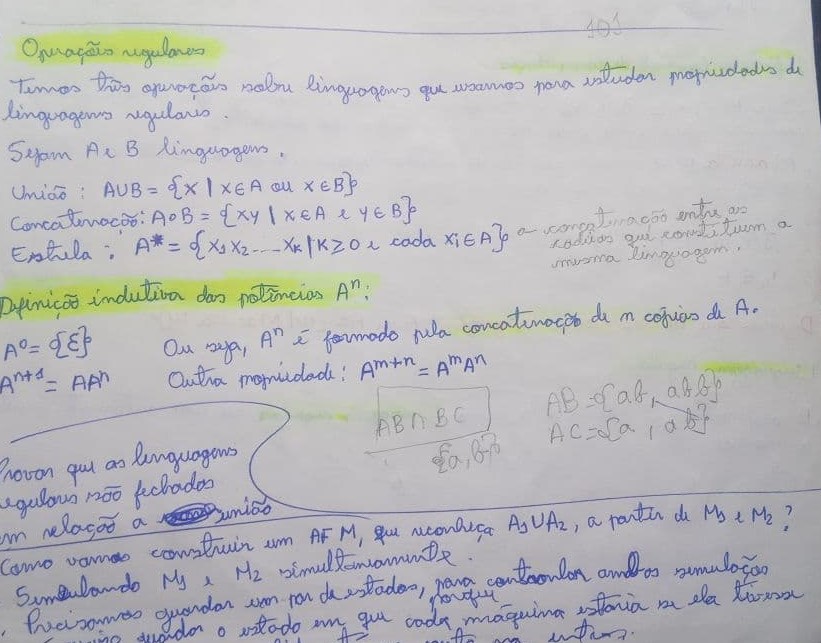 101
Operações regulares
Temos três operações sobre linguagens que usamos para estudar propriedades de
linguagens regulares.
Sejam A e B linguagens.
União: A∪B = {X | X∈A ou X∈B}
Concatenação: A∘B = {XY | X∈A e Y∈B}
Estrela: A* = {X₁X₂...Xₖ | K≥0 e cada Xᵢ∈A} a concatenação entre as
cadeias que constituem a
mesma linguagem.
Definição indutiva das potências Aⁿ:
A⁰ = {ε} Ou seja, Aⁿ é formado pela concatenação de n cópias de A.
Aⁿ⁺¹ = AAⁿ Outra propriedade: Aᵐ⁺ⁿ = AᵐAⁿ
AB∩BC
{a,b}
AB={ab, abb}
AC={a, ab}
Provar que as linguagens
regulares são fechadas
em relação a união
Como vamos construir um AF M, que reconheça A₁∪A₂, a partir de M₁ e M₂?
Simulando M₁ e M₂ simultaneamente.
Precisamos guardar um par de estados, para controlar ambas simulação
porque
guardar o estado em que cada máquina estaria se ela tivesse